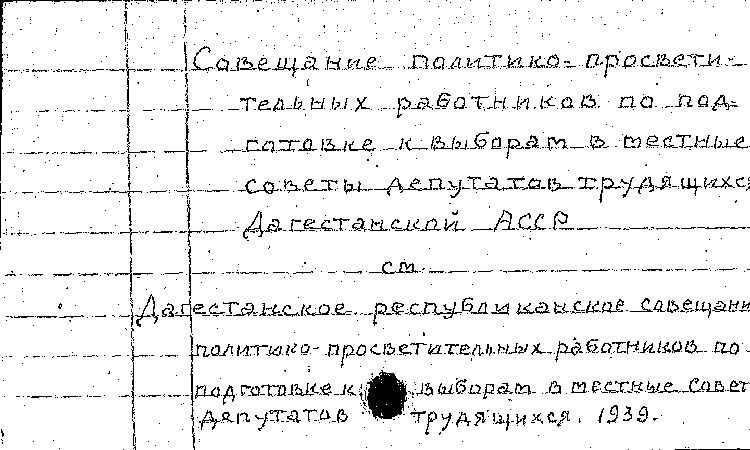 Совещание политико-просвети-
тельных работников по под-
готовке к выборам в местные
советы депутатов трудящихся
Дагестанской АССР
см.
Дагестанское республиканское совещани
политико-просветительных работников по
подготовке к выборам в местные совет
депутатов трудящихся. 1939.